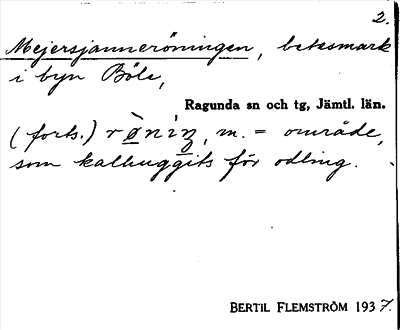 2.
Mejersjanneröningen, betesmark
i byn Böle,
Ragunda sn och tg, Jämtl. län.
(forts.) rø̀nìŋ, m. = område,
som kalhuggits för odling.
BERTIL FLEMSTRÖM 1937.